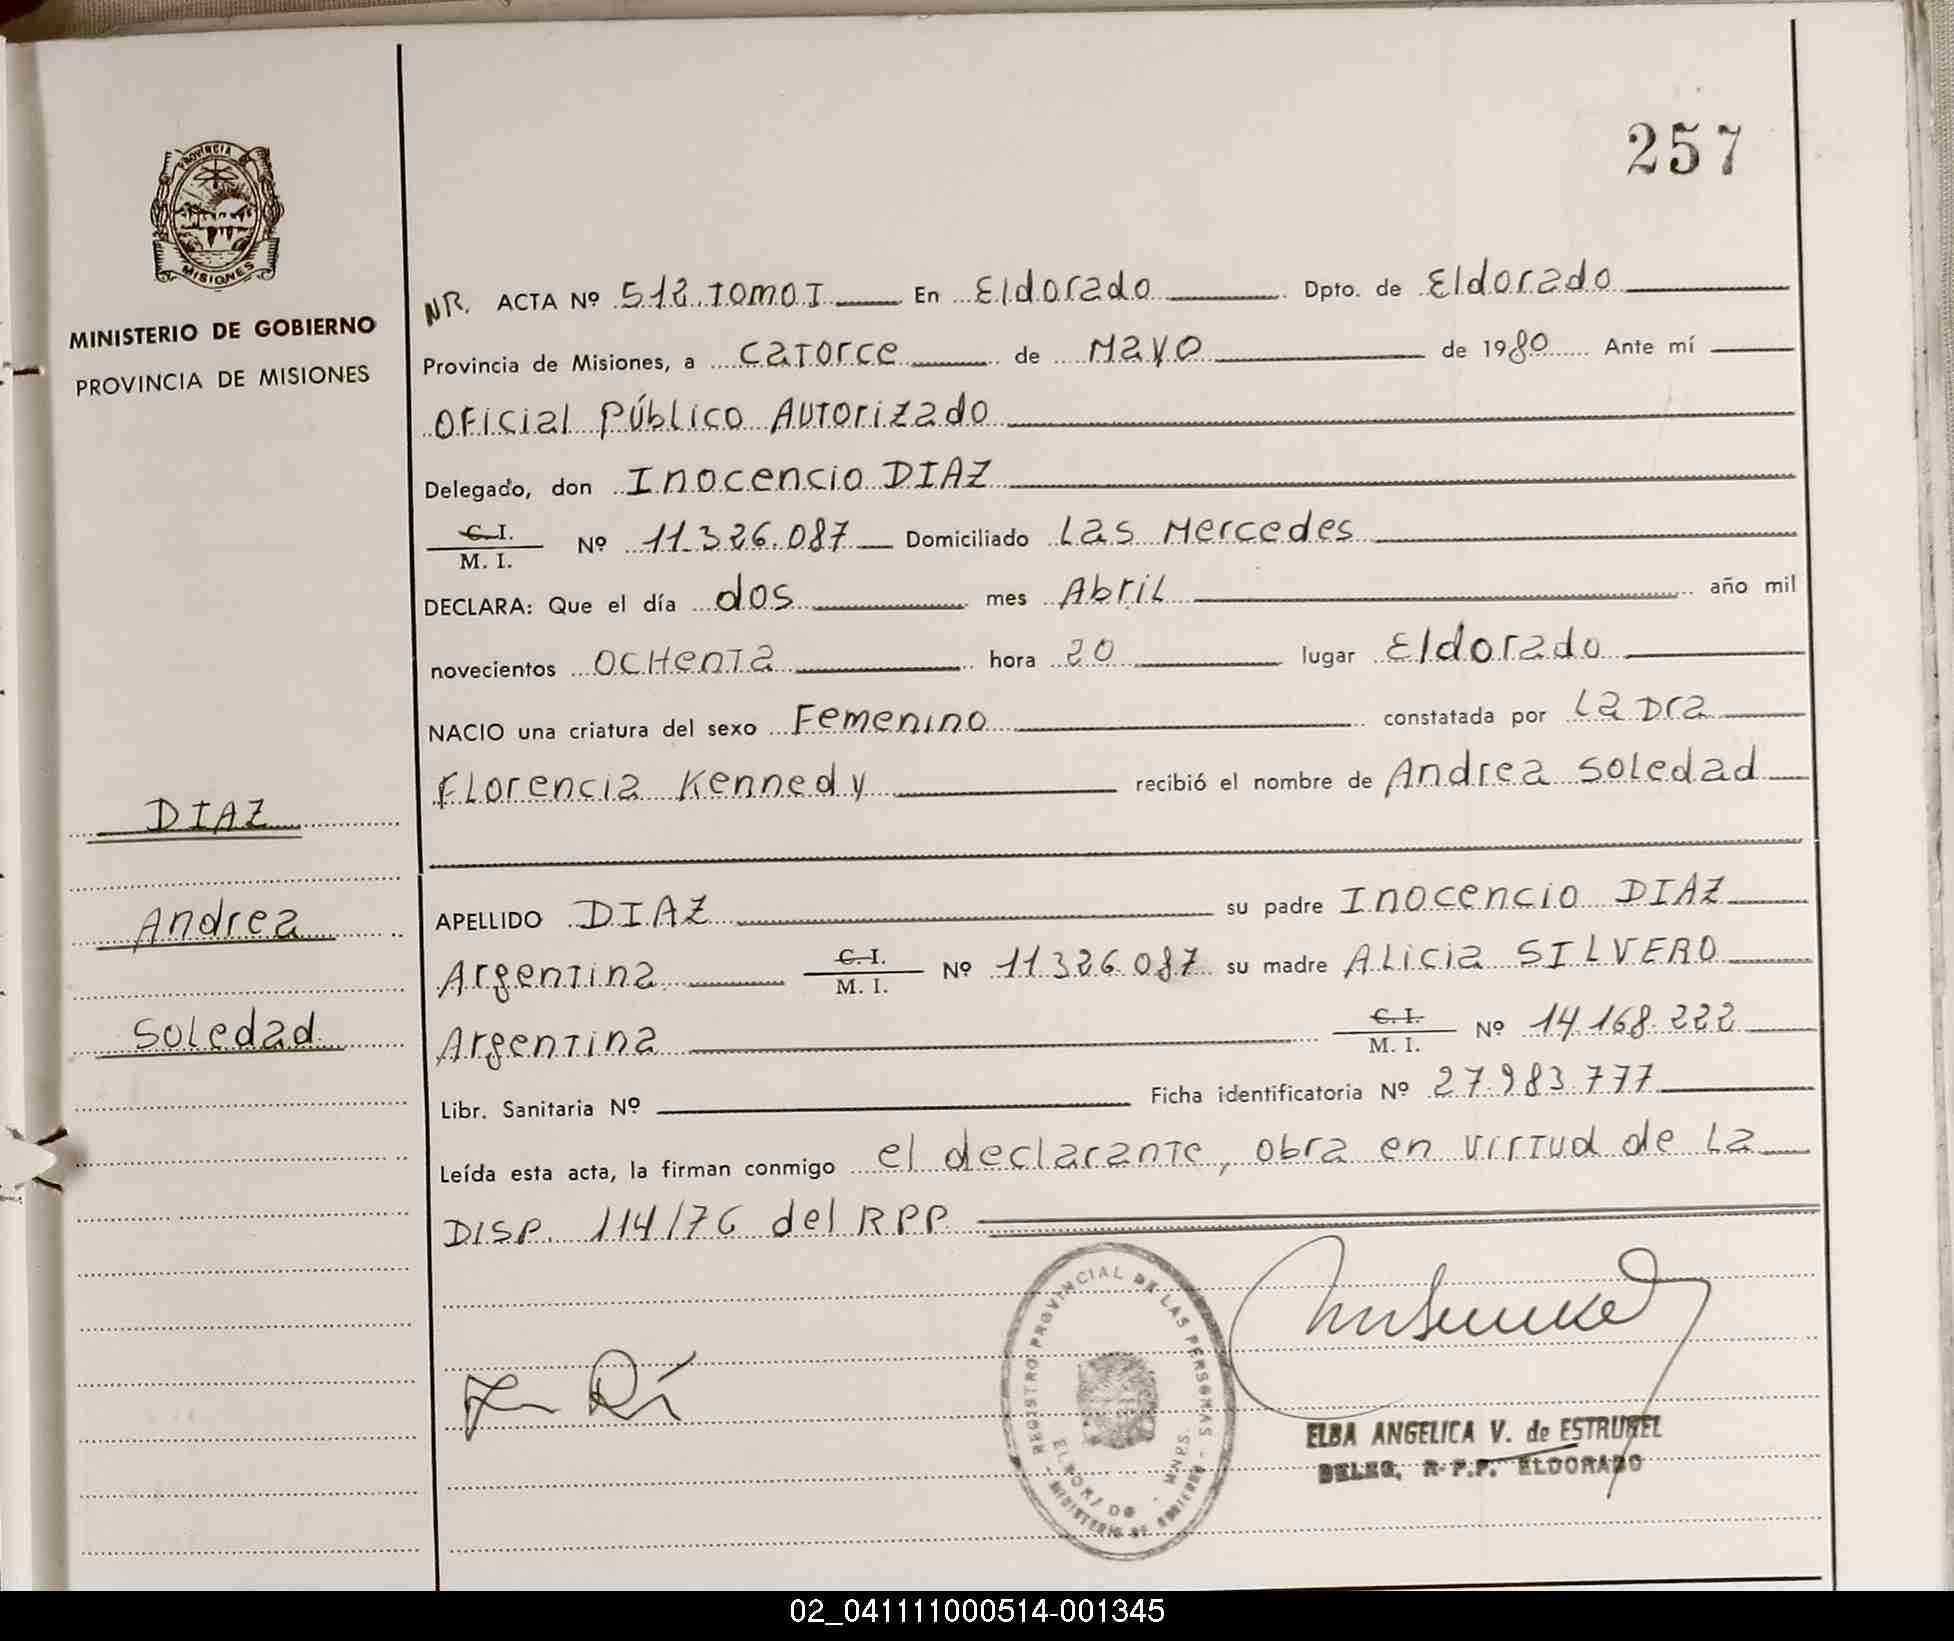 257
PROVINCIA DE
MISIONES
MINISTERIO DE GOBIERNO
PROVINCIA DE MISIONES
DIAZ
Andrea
Soledad
NR. ACTA Nº 512 TOMO I En Eldorado Dpto. de Eldorado
Provincia de Misiones, a Catorce de Mayo de 1980 Ante mí
Oficial Público Autorizado
Delegado, don Inocencio DIAZ
C. I.
M. I. Nº 11.326.087 Domiciliado Las Mercedes
DECLARA: Que el día dos mes Abril año mil
novecientos OCHenta hora 20 lugar Eldorado
NACIO una criatura del sexo Femenino constatada por La Dra
Florencia Kennedy recibió el nombre de Andrea Soledad
APELLIDO DIAZ su padre Inocencio DIAZ
Argentina C. I. M. I. Nº 11.326.087 su madre Alicia SILVERO
Argentina C. I. M. I. Nº 14.168.222
Libr. Sanitaria Nº Ficha identificatoria Nº 27.983.777
Leída esta acta, la firman conmigo el declarante, obra en virtud de la
DISP. 114/76 del RPP.
REGISTRO PROVINCIAL DE LAS PERSONAS
ELDORADO - MNES.
MINISTERIO DE GOBIERNO
ELBA ANGELICA V. de ESTRUBEL
DELEG. R.P.P. ELDORADO
02_041111000514-001345